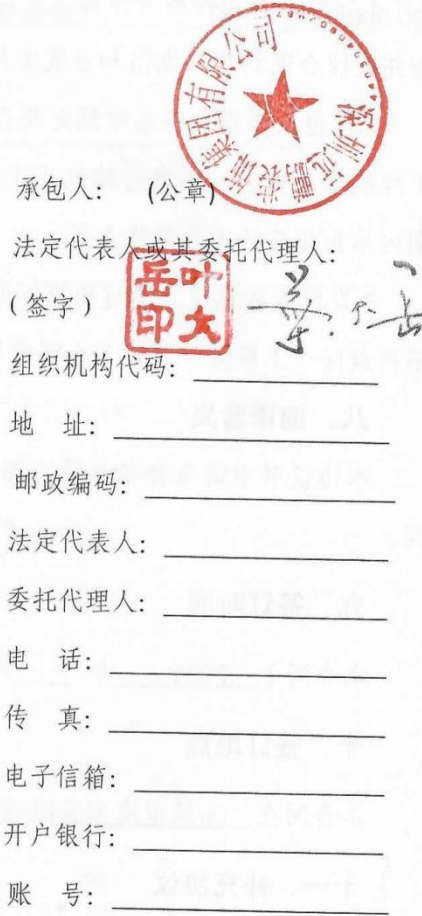 深圳远鹏装饰集团有限公司
承包人： (公章)
法定代表人或其委托代理人：
(签字)
叶大岳印
组织机构代码：
地 址：
邮政编码：
法定代表人：
委托代理人：
电 话：
传 真：
电子信箱：
开户银行：
账 号：
八、
九、签订时间
十、签订地点
十一、补充协议